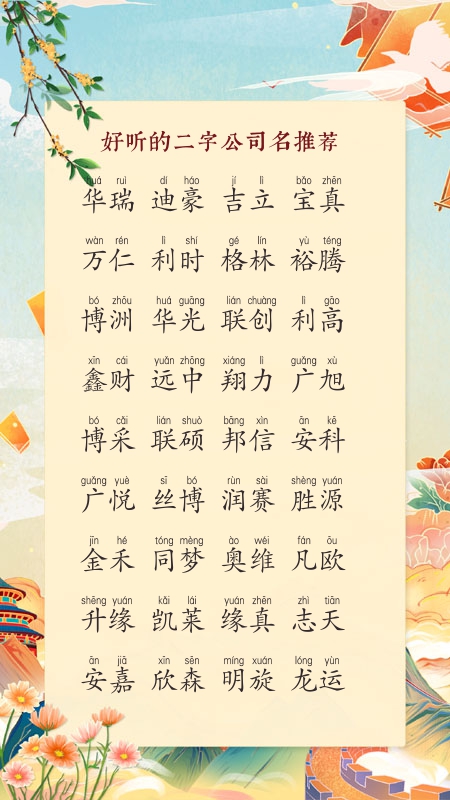 好听的二字公司名推荐
huá ruì dí háo jí lì bǎo zhēn
华瑞 迪豪 吉立 宝真
wàn rén lì shí gé lín yù téng
万仁 利时 格林 裕腾
bó zhōu huá guāng lián chuàng lì gāo
博洲 华光 联创 利高
xīn cái yuǎn zhōng xiáng lì guǎng xù
鑫财 远中 翔力 广旭
bó cǎi lián shuò bāng xìn ān kē
博采 联硕 邦信 安科
guǎng yuè sī bó rùn sài shèng yuán
广悦 丝博 润赛 胜源
jīn hé tóng mèng ào wéi fán ōu
金禾 同梦 奥维 凡欧
shēng yuán kǎi lái yuán zhēn zhì tiān
升缘 凯莱 缘真 志天
ān jiā xīn sēn míng xuán lóng yùn
安嘉 欣森 明旋 龙运